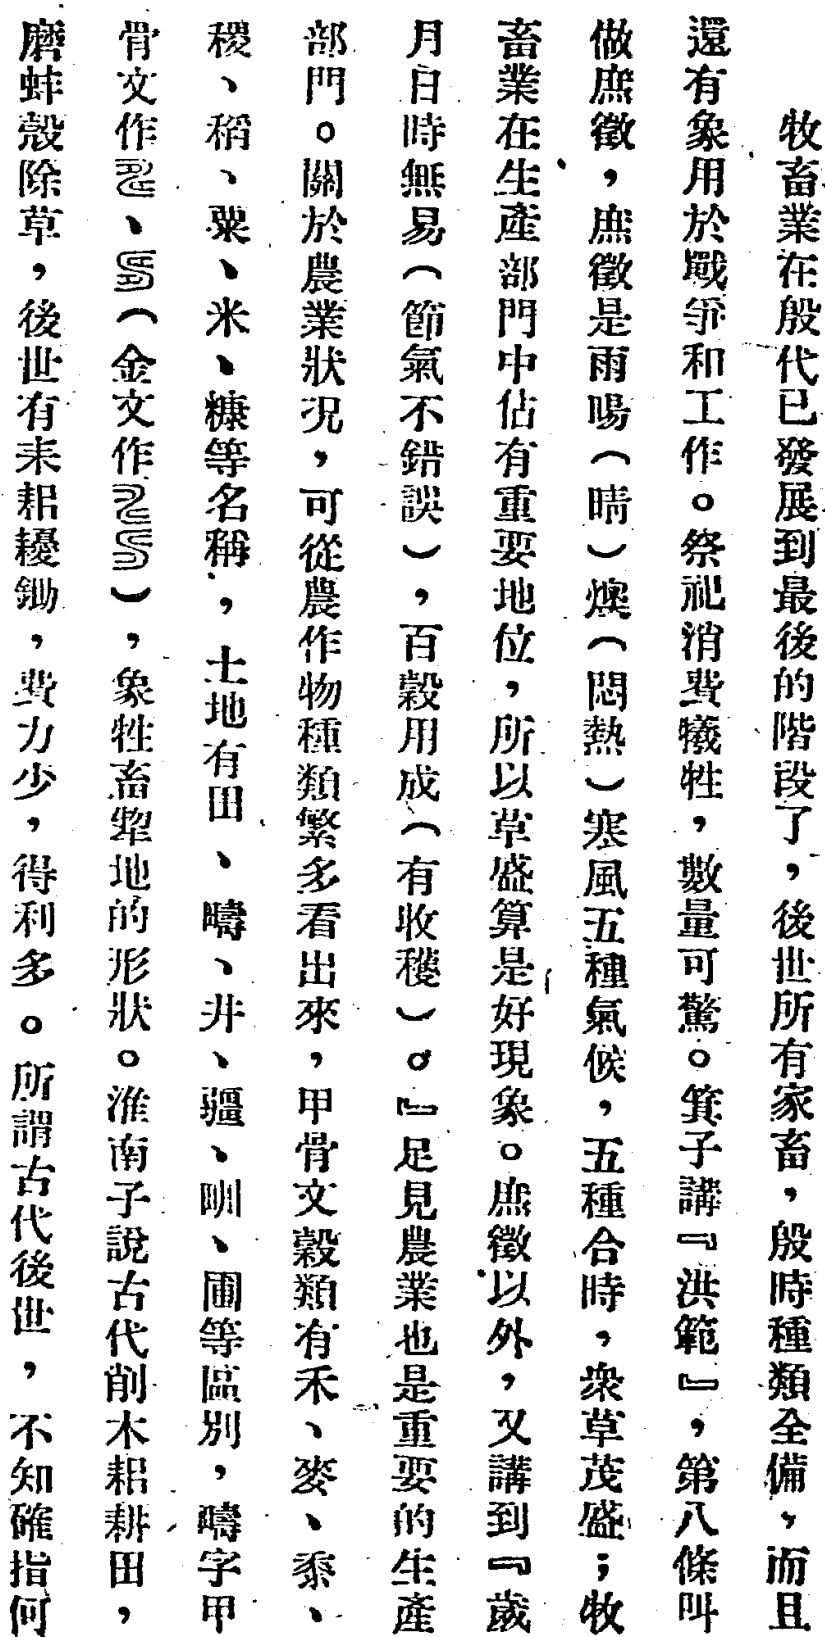 牧畜業在殷代已發展到最後的階段了，後世所有家畜，殷時種類全備，而且
還有象用於戰爭和工作。祭祀消費犧牲，數量可驚。箕子講『洪範』，第八條叫
做庶徵，庶徵是雨暘（晴）燠（悶熱）寒風五種氣候，五種合時，衆草茂盛；牧
畜業在生產部門中佔有重要地位，所以草盛算是好現象。庶徵以外，又講到『歲
月日時無易（節氣不錯誤），百穀用成（有收穫）。』足見農業也是重要的生產
部門。關於農業狀況，可從農作物種類繁多看出來，甲骨文穀類有禾、麥、黍、
稷、稻、粟、米、糠等名稱，土地有田、疇、井、疆、甽、圃等區別，疇字甲
骨文作、（金文作），象牲畜犂地的形狀。淮南子說古代削木耜耕田，
磨蚌殼除草，後世有耒耜耰鋤，費力少，得利多。所謂古代後世，不知確指何